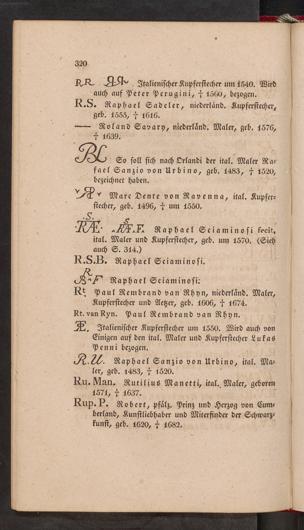 320
R.R. Italienischer Kupferstecher um 1540. Wird
auch auf Peter Perugini, † 1560, bezogen.
R.S. Raphael Sadeler, niederländ. Kupferstecher,
geb. 1555, † 1616.
— Roland Savary, niederländ. Maler, geb. 1576,
† 1639.
So soll sich nach Orlandi der ital. Maler Ra-
fael Sanzio von Urbino, geb. 1483, † 1520,
bezeichnet haben.
Marc Dente von Ravenna, ital. Kupfer-
stecher, geb. 1496, † um 1550.
Raphael Sciaminosi fecit,
ital. Maler und Kupferstecher, geb. um 1570. (Sieh
auch S. 314.)
R.S.B. Raphael Sciaminosi.
Raphael Sciaminosi.
Rt. Paul Rembrand van Rhyn, niederländ. Maler,
Kupferstecher und Aetzer, geb. 1606, † 1674.
Rt. van Ryn. Paul Rembrand van Rhyn.
Italienischer Kupferstecher um 1550. Wird auch von
Einigen auf den ital. Maler und Kupferstecher Lukas
Penni bezogen.
R.U. Raphael Sanzio von Urbino, ital. Ma-
ler, geb. 1483, † 1520.
Ru. Man. Rutilius Manetti, ital. Maler, geboren
1571, † 1637.
Rup. P. Robert, pfälz. Prinz und Herzog von Cum-
berland, Kunstliebhaber und Miterfinder der Schwarz-
kunst, geb. 1620, † 1682.